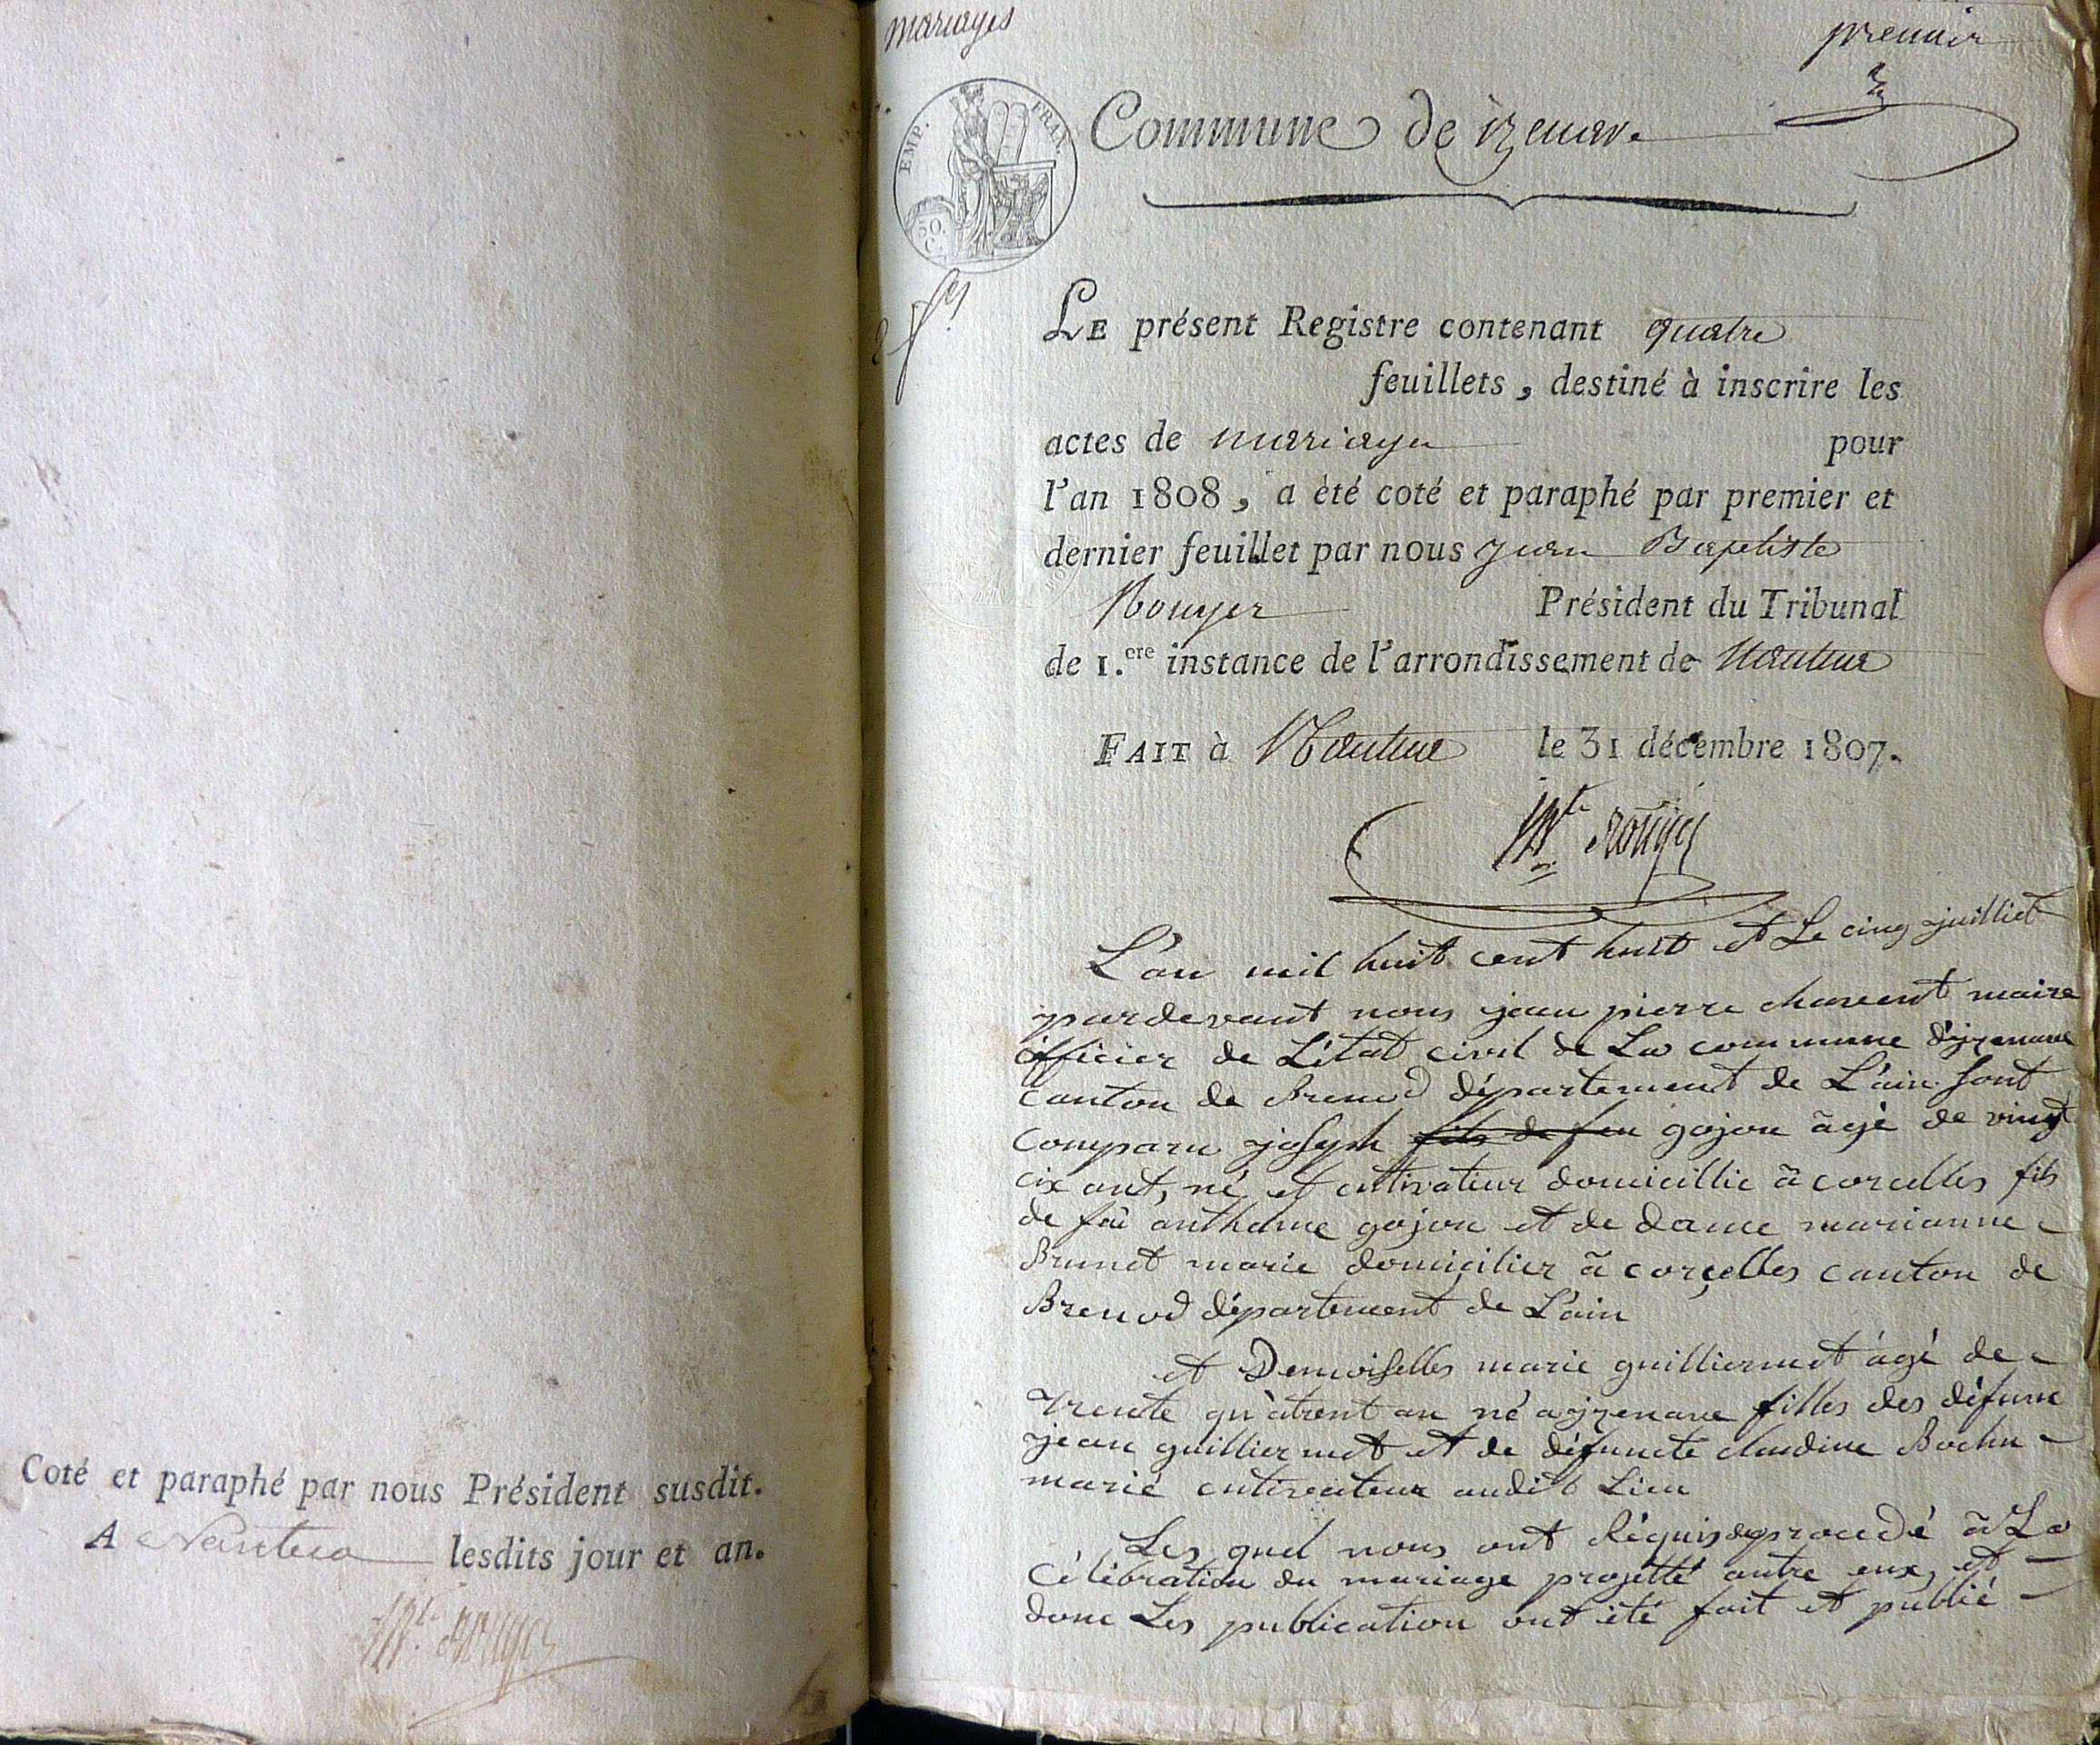 Coté et paraphé par nous Président susdit.
A Nantua lesdits jour et an.
Bte rouyer
mariages
premier
EMP. FRAN.
50 C.
Commune de izenave
LE présent Registre contenant quatre
feuillets, destiné à inscrire les
actes de mariages pour
l'an 1808, a été coté et paraphé par premier et
dernier feuillet par nous Jean Baptiste
Rouyer Président du Tribunal
de 1.ere instance de l'arrondissement de Nantua
FAIT à Nantua le 31 décembre 1807.
Bte rouyer
L'an mil huit cent huit et Le cinq juilliet
pardevant nous jean pierre charvent maire
officier de L'état civil de La commune d'yzenave
canton de Brenod département de L'ain sont
comparu joseph fils de feu gojon âgé de vingt
cix ant, né et cultivateur domicillié à corcelles fils
de fû anthelme gojon et de dame marianne
Brunet marie domicilier à corcelles canton de
Brenod département de L'ain
et Demoiselles marie guilliermet âgé de
trente quàtrent an né a yzenave filles des défunt
jean guilliermet et de défuncte claudine Bochu
marié cultivateur audit Lieu
Les quel nous ont Réquis de procedé à La
célébration du mariage projetté entre eux, et
donc Les publication ont été fait et publié